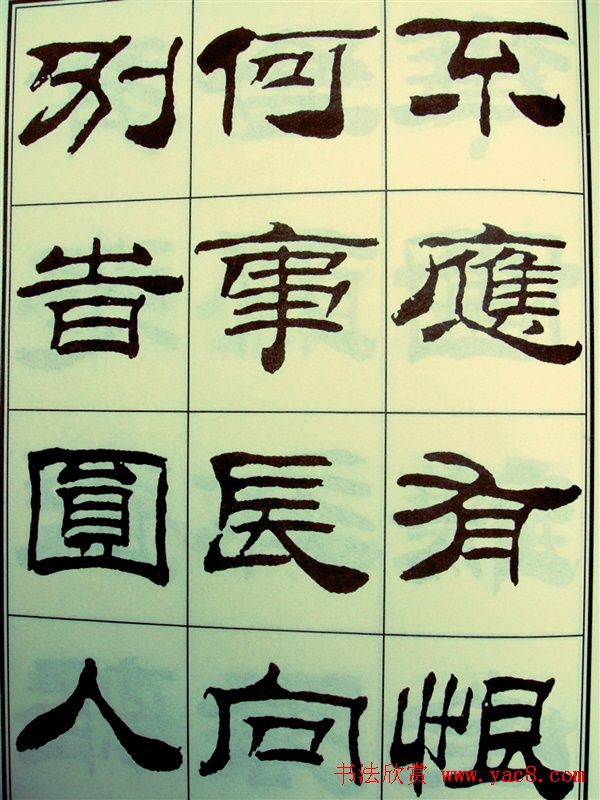 不應有恨
何事長向
別旹圓人
书法欣赏 www.yac8.com